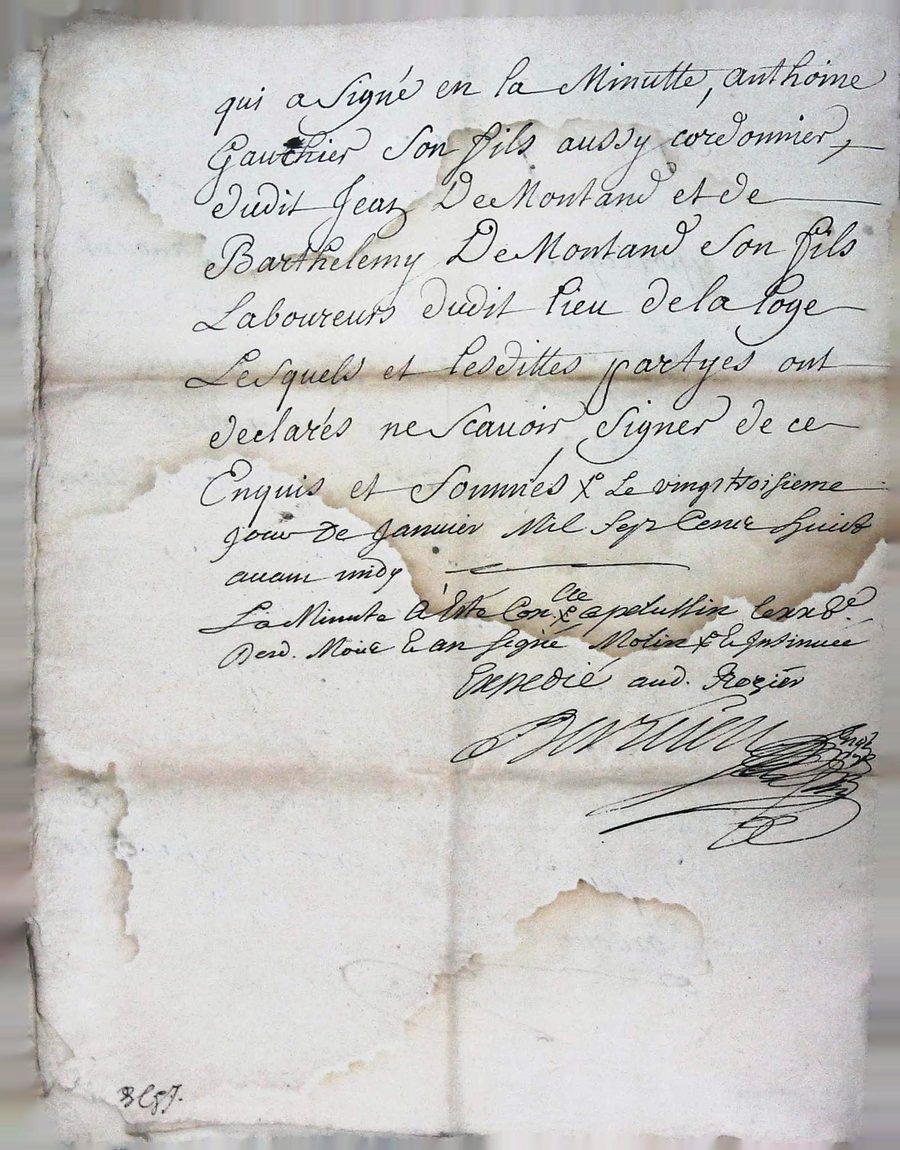 qui a Signé en la Minutte, anthoine
Gauthier Son fils aussy cordonnier,
dudit Jean DeMontand et de
Barthelemy DeMontand Son fils
Laboureurs dudit lieu de la loge
Lesquels et lesdittes partyes ont
declarés ne Scauoir Signer de ce
Enquis et Sommés Le vingt troisieme
jour De Januier Mil Sept Cent huict
auant midy
La Minute A Esté Con.lee a pelussin
Signé Molin & Insinuee
Expedié aud. Rozier